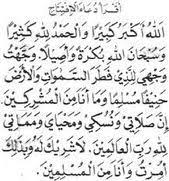 اقرأ دعاء الافتتاح
اَللهُ اَكْبَرُ كَبِيْرًا وَالْحَمْدُ لِلّٰهِ كَثِيْرًا
وَسُبْحَانَ اللهِ بُكْرَةً وَاَصِيْلًا. وَجَّهْتُ
وَجْهِيَ لِلَّذِيْ فَطَرَ السَّمٰوَاتِ وَالْاَرْضَ
حَنِيْفًا مُسْلِمًا وَمَا اَنَا مِنَ الْمُشْرِكِيْنَ
اِنَّ صَلَاتِيْ وَنُسُكِيْ وَمَحْيَايَ وَمَمَاتِيْ
لِلّٰهِ رَبِّ الْعَالَمِيْنَ. لَا شَرِيْكَ لَهُ وَبِذٰلِكَ
اُمِرْتُ وَاَنَا مِنَ الْمُسْلِمِيْنَ.